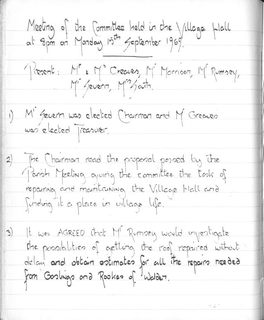 Meeting of the Committee held in the Village Hall
at 8pm on Monday 15th September 1969.
Present: Mr & Mrs Greaves, Mr Morrison, Mr Rumsey,
Mr Severn, Mrs South.
1) Mr Severn was elected Chairman and Mr Greaves
was elected Treasurer.
2) The Chairman read the proposal passed by the
Parish Meeting giving the committee the task of
repairing and maintaining the Village Hall and
finding it a place in village life.
3) It was AGREED that Mr Rumsey would investigate
the possibilities of getting the roof repaired without
delay and obtain estimates for all the repairs needed
from Goslings and Rookes of